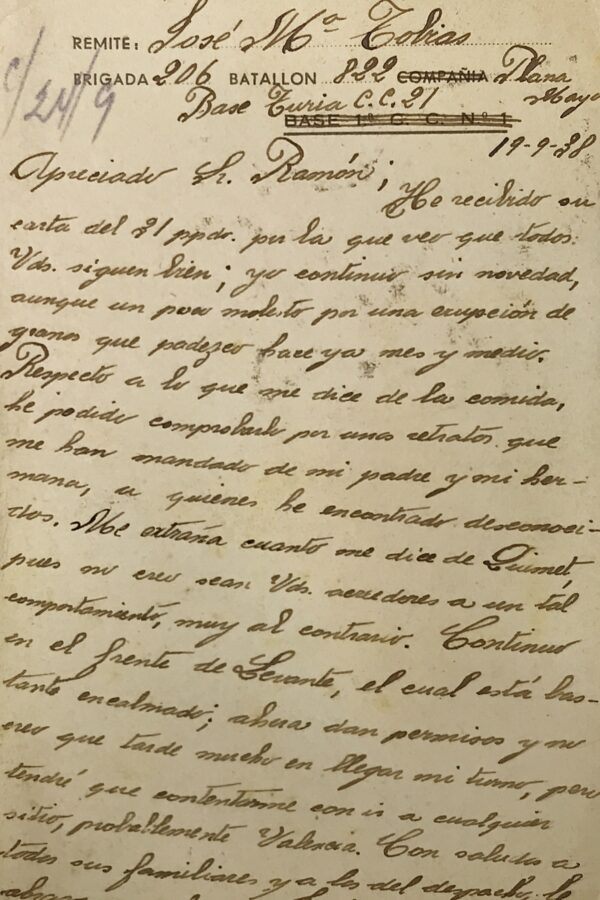 REMITE: José Mª Tobias
BRIGADA 206 BATALLON 822 COMPAÑIA Plana
Mayor
Base Turia C.C. 21
BASE 1ª C. C. Nº 1
c/ 24/9
19-9-38
Apreciado Sr. Ramón;
He recibido su
carta del 31 ppdo. por la que veo que todos
Vds. siguen bien; yo continuo sin novedad,
aunque un poco molesto por una erupción de
granos que padezco hace ya mes y medio.
Respecto a lo que me dice de la comida,
he podido comprobarlo por unos retratos que
me han mandado de mi padre y mi her-
mana, a quienes he encontrado desconoci-
dos. Me extraña cuanto me dice de Quimet,
pues no creo sean Vds. acredores a un tal
comportamiento, muy al contrario. Continuo
en el frente de Levante, el cual está bas-
tante encalmado; ahora dan permisos y no
creo que tarde mucho en llegar mi turno, pero
tendré que contentarme con ir a cualquier
sitio, probablemente Valencia. Con saludos a
todos sus familiares y a los del despacho, le